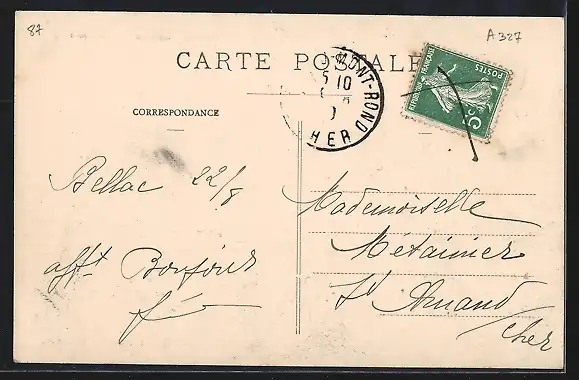 87
A 327
CARTE POSTALE
MONT-ROND
5
10
HER
REPUBLIQUE FRANÇAISE
POSTES
5c
CORRESPONDANCE
Bellac 22/8
afft Bonjour
Mademoiselle
Métainier
St Amand
Cher